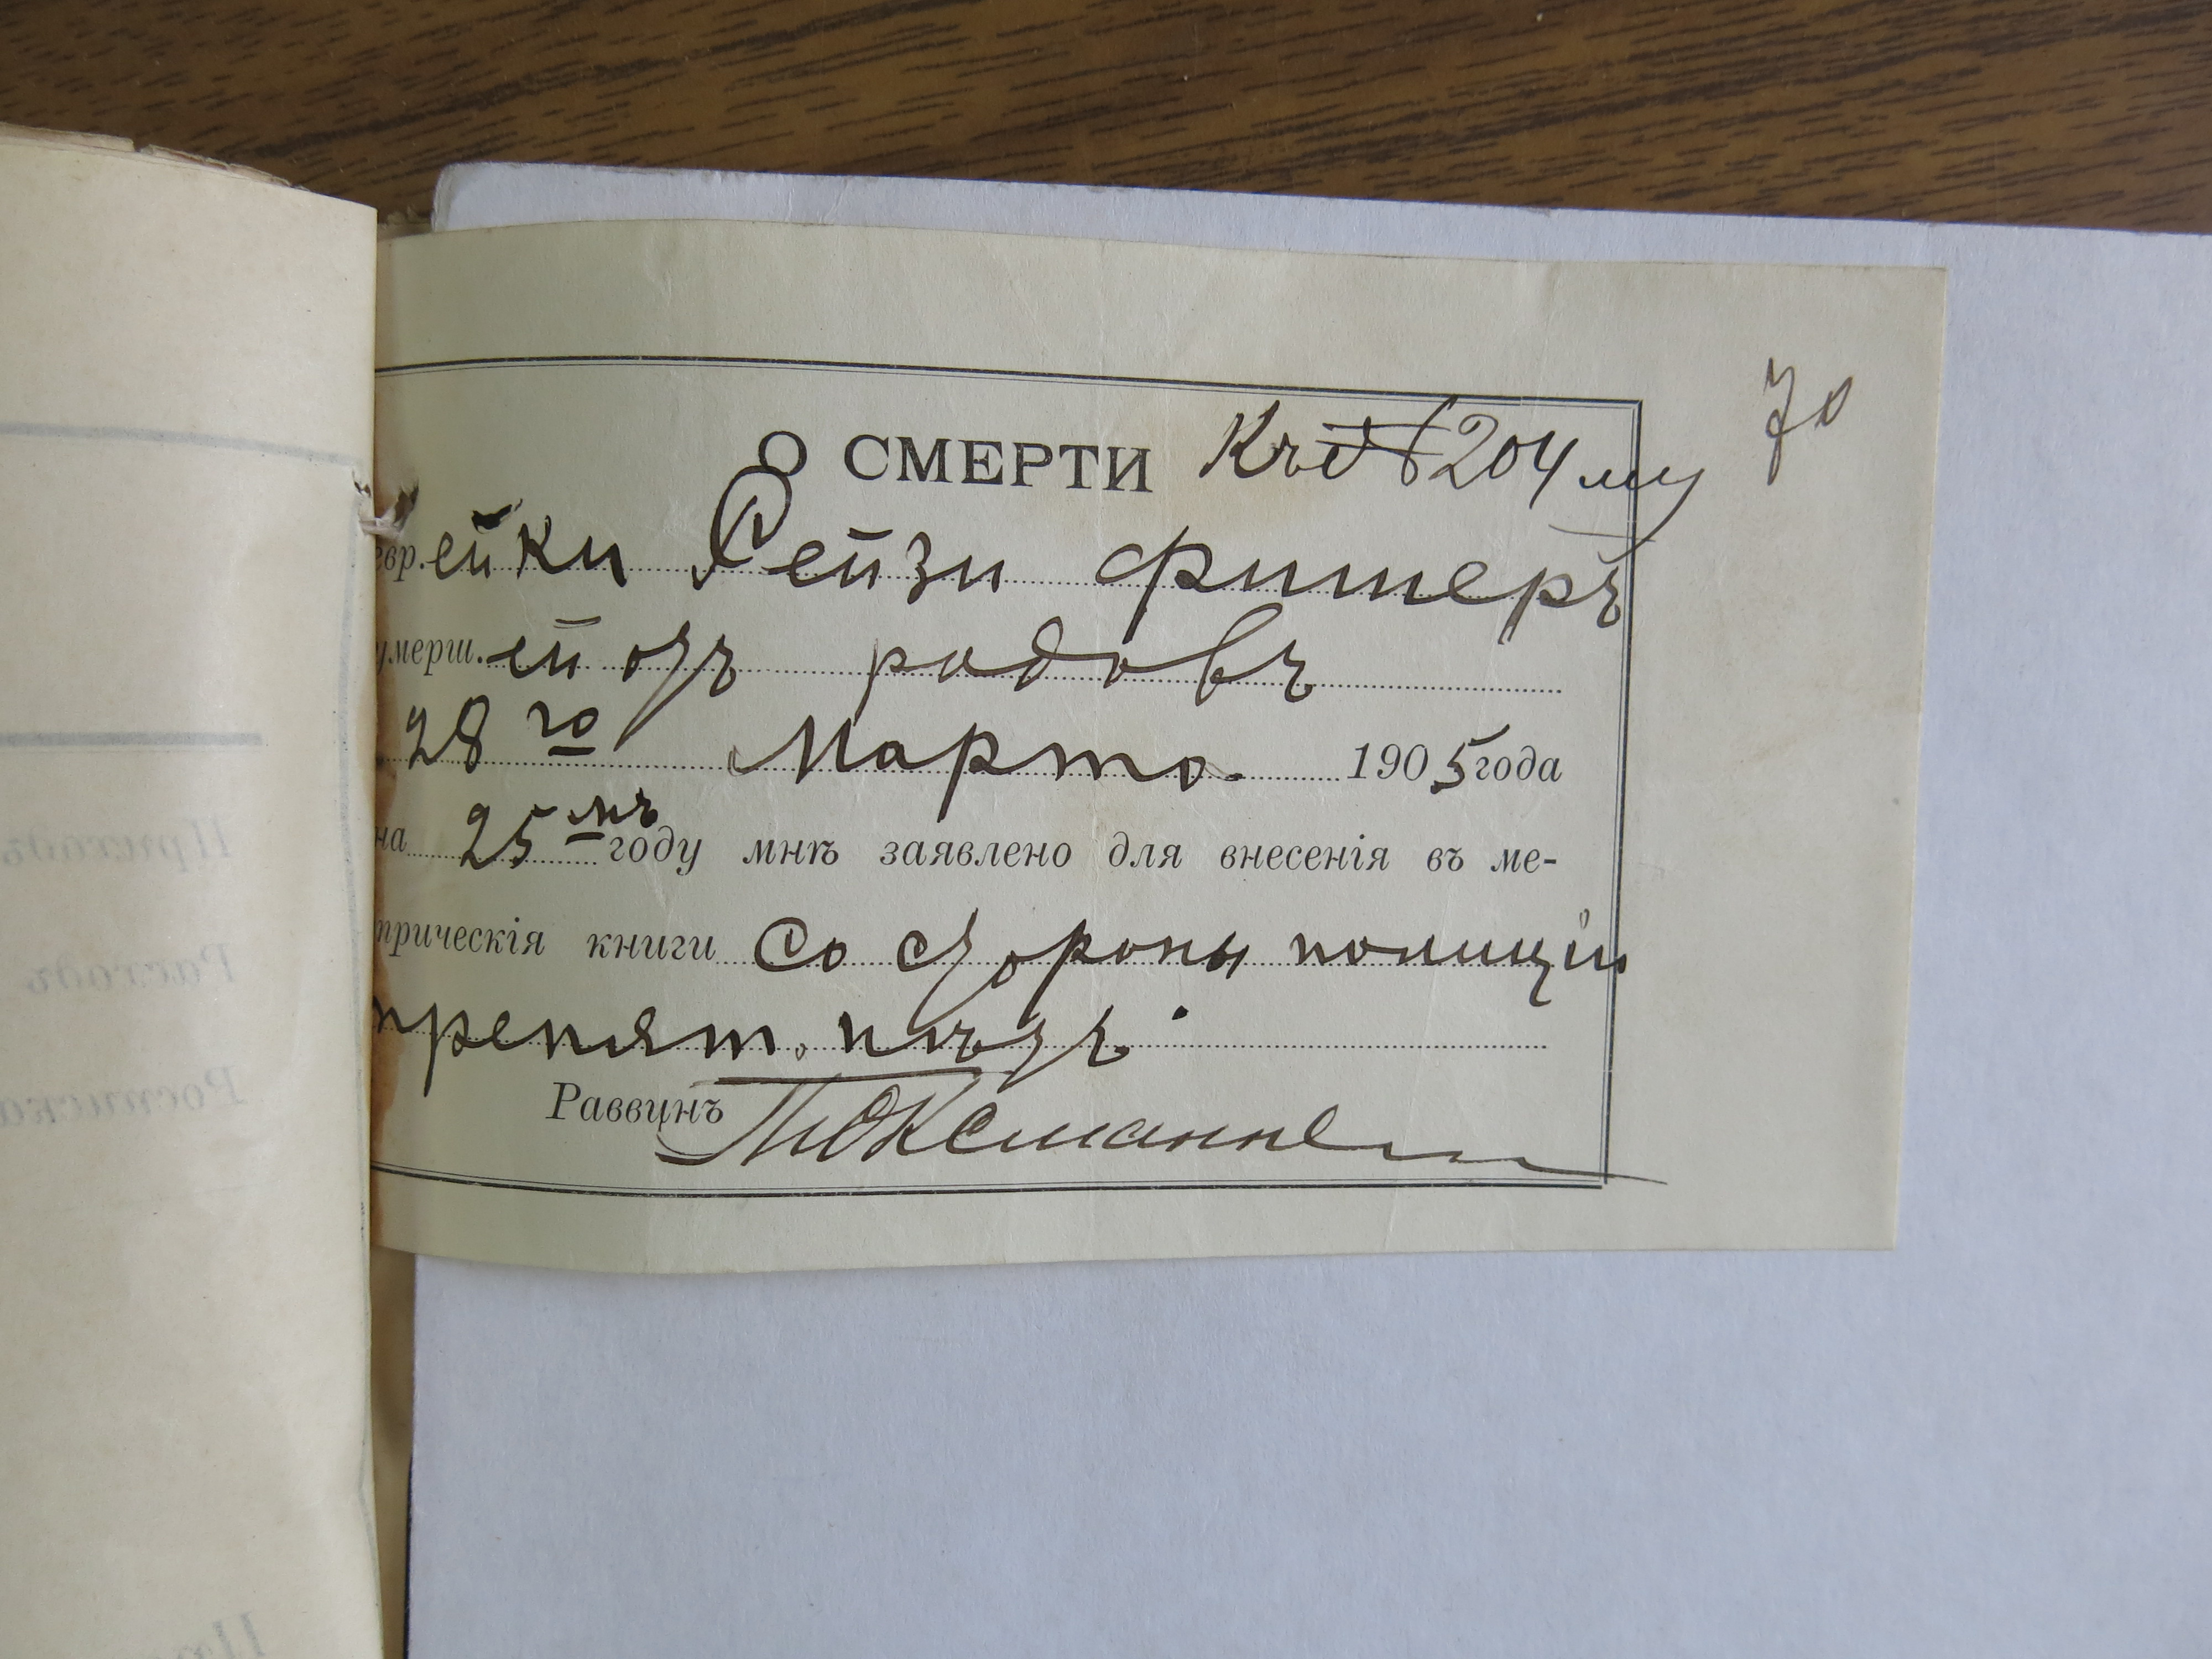 70
О СМЕРТИ Къ № 204 му
евр.ейки Рейзи Фишеръ
умерш.ей отъ родовъ
28 го Марта 1905 года
на 25 мъ году мнѣ заявлено для внесенія въ ме-
трическія книги Со стороны полиціи
препят. нѣтъ.
Раввинъ
Приходъ
Расходъ